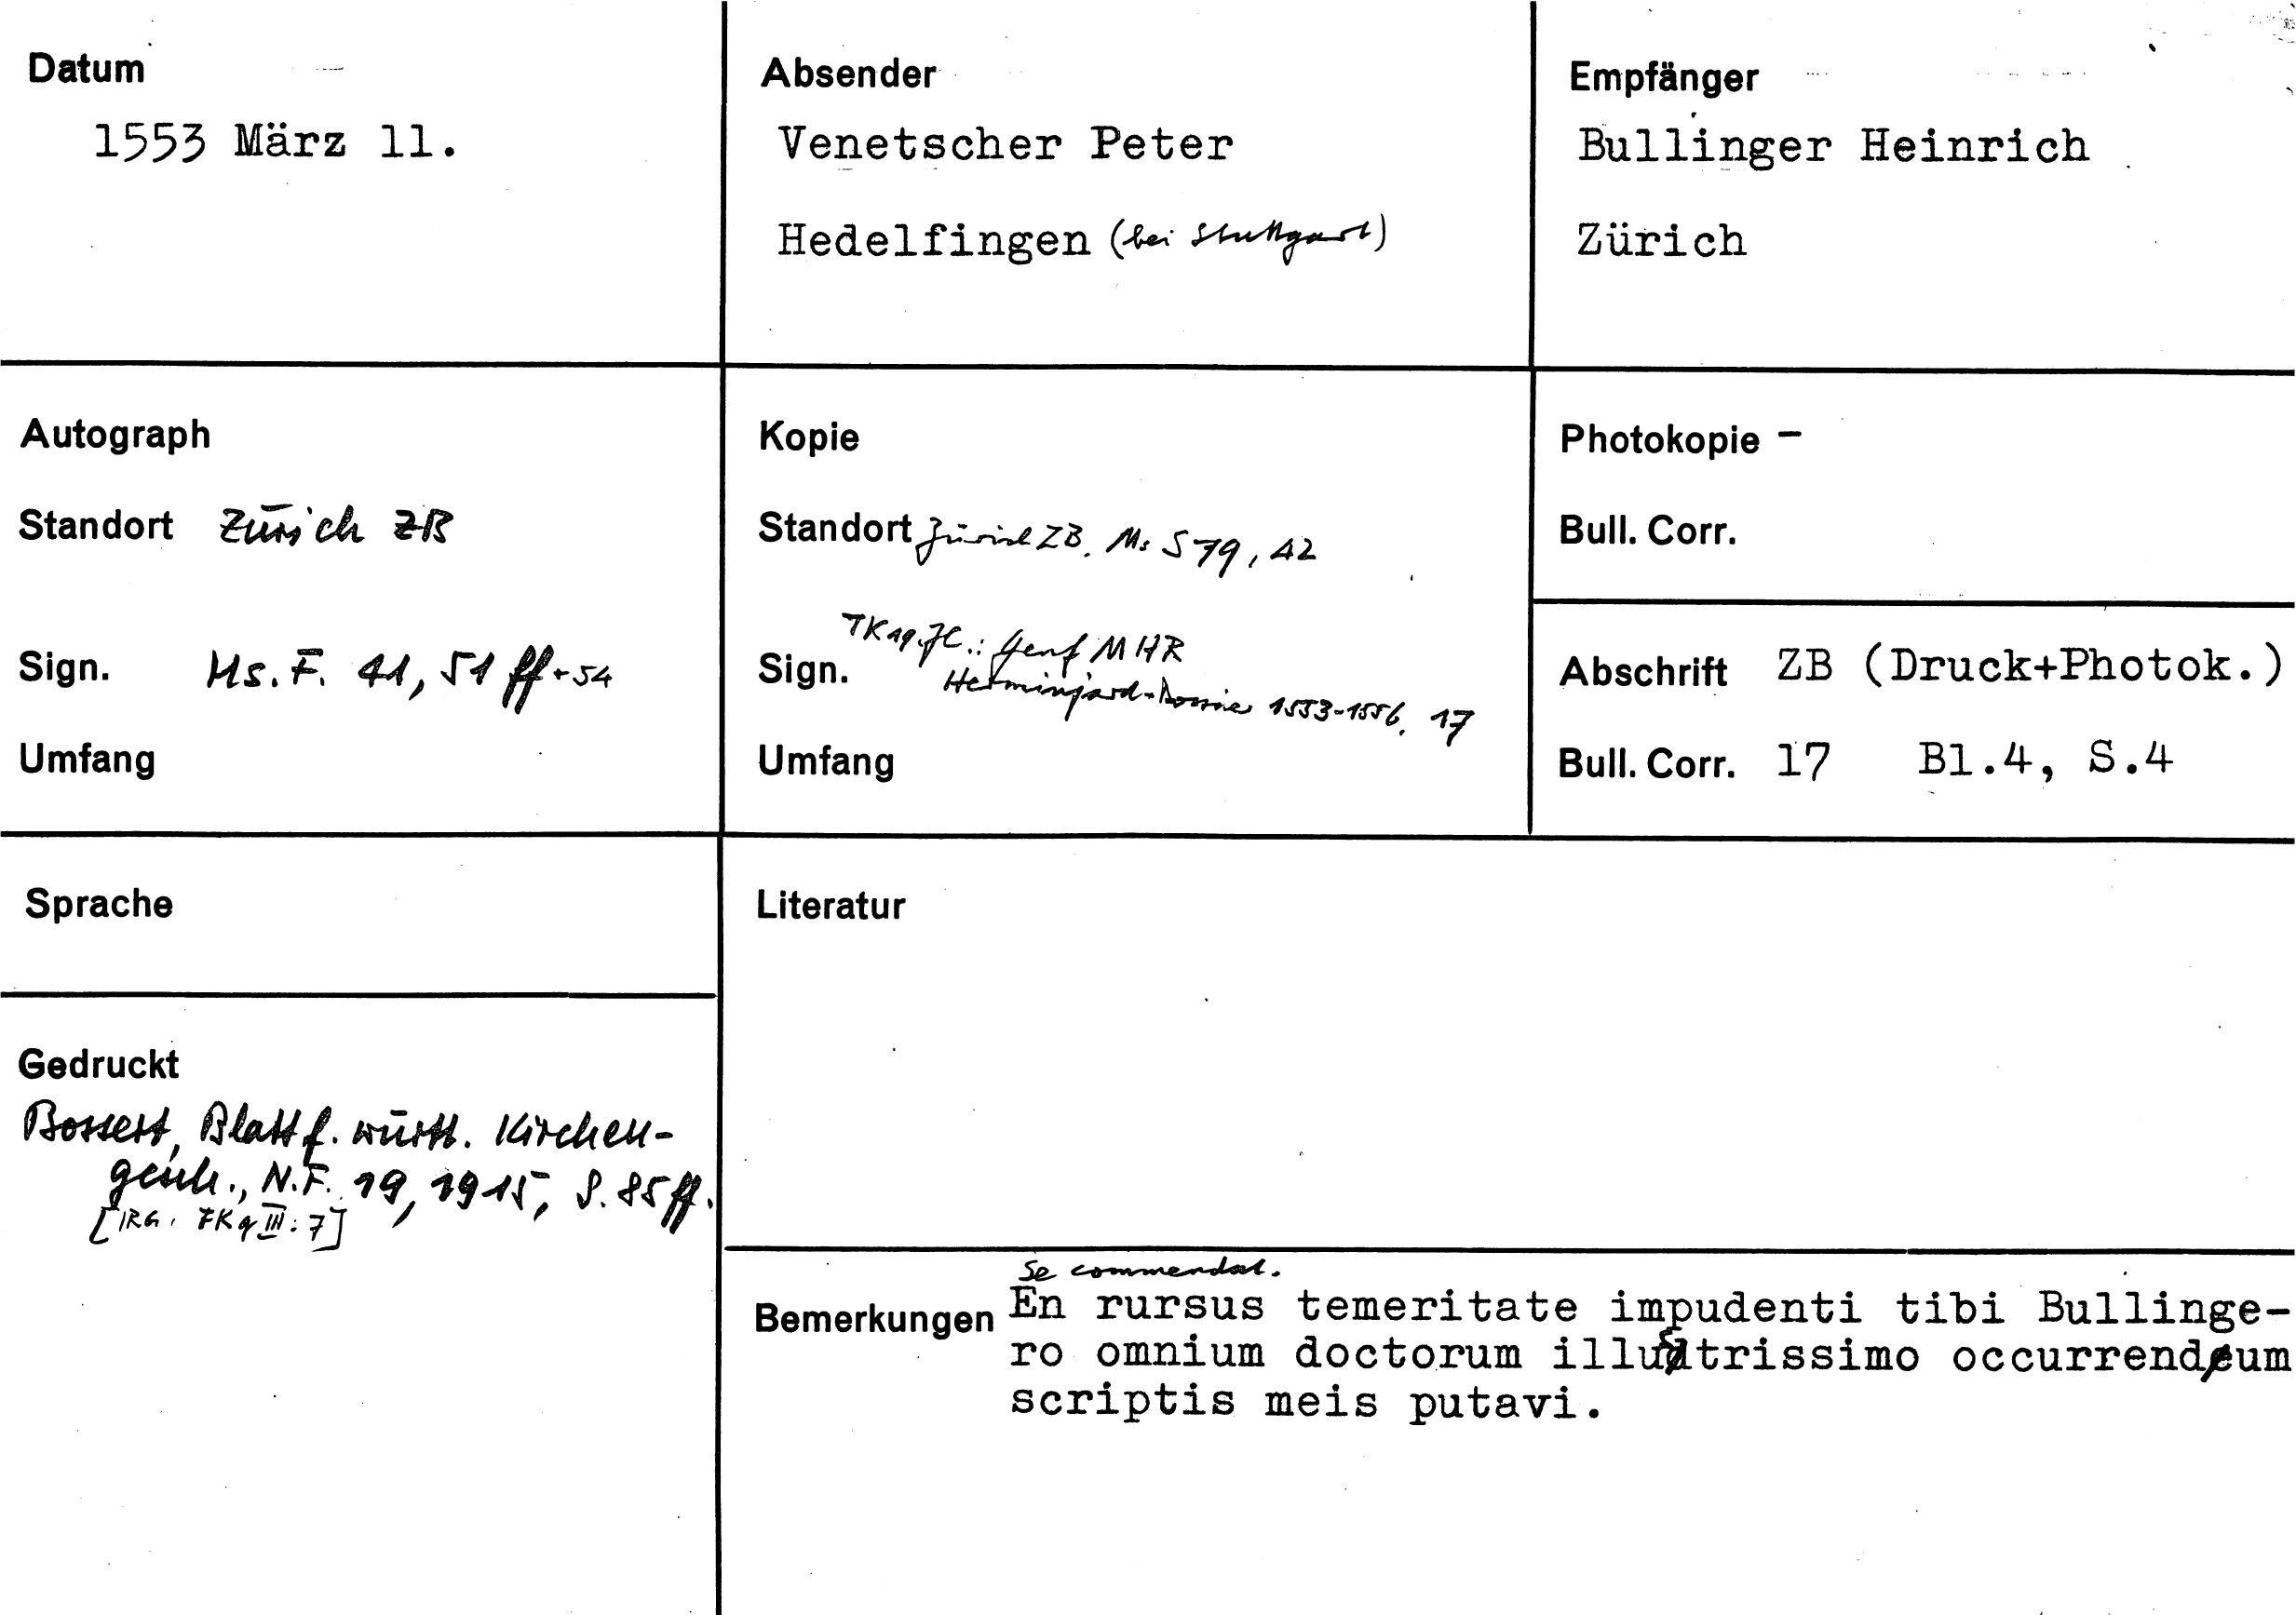 Datum
1553 März 11.
Absender
Venetscher Peter
Hedelfingen (bei Stuttgart)
Empfänger
Bullinger Heinrich
Zürich
Autograph
Standort Zürich ZB
Sign. Ms. F. 41, 51 ff + 54
Umfang
Kopie
Standort Zürich ZB. Ms S 79, 42
Sign. Genf MHR
Herminjard-Dossier 1553-1556, 17
Umfang
Photokopie –
Bull. Corr.
Abschrift ZB (Druck+Photok.)
Bull. Corr. 17 Bl.4, S.4
Sprache
Gedruckt
Bossert, Blatt f. württ. Kirchen-
gesch., N.F. 19, 1915, S. 85 ff.
[IRG. FKq III: 7]
Literatur
Bemerkungen
Se commendat.
En rursus temeritate impudenti tibi Bullinge-
ro omnium doctorum illustrissimo occurrendum
scriptis meis putavi.